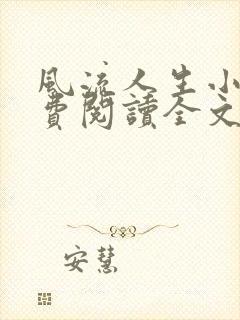 風流人生小
費閱讀全文
安慧